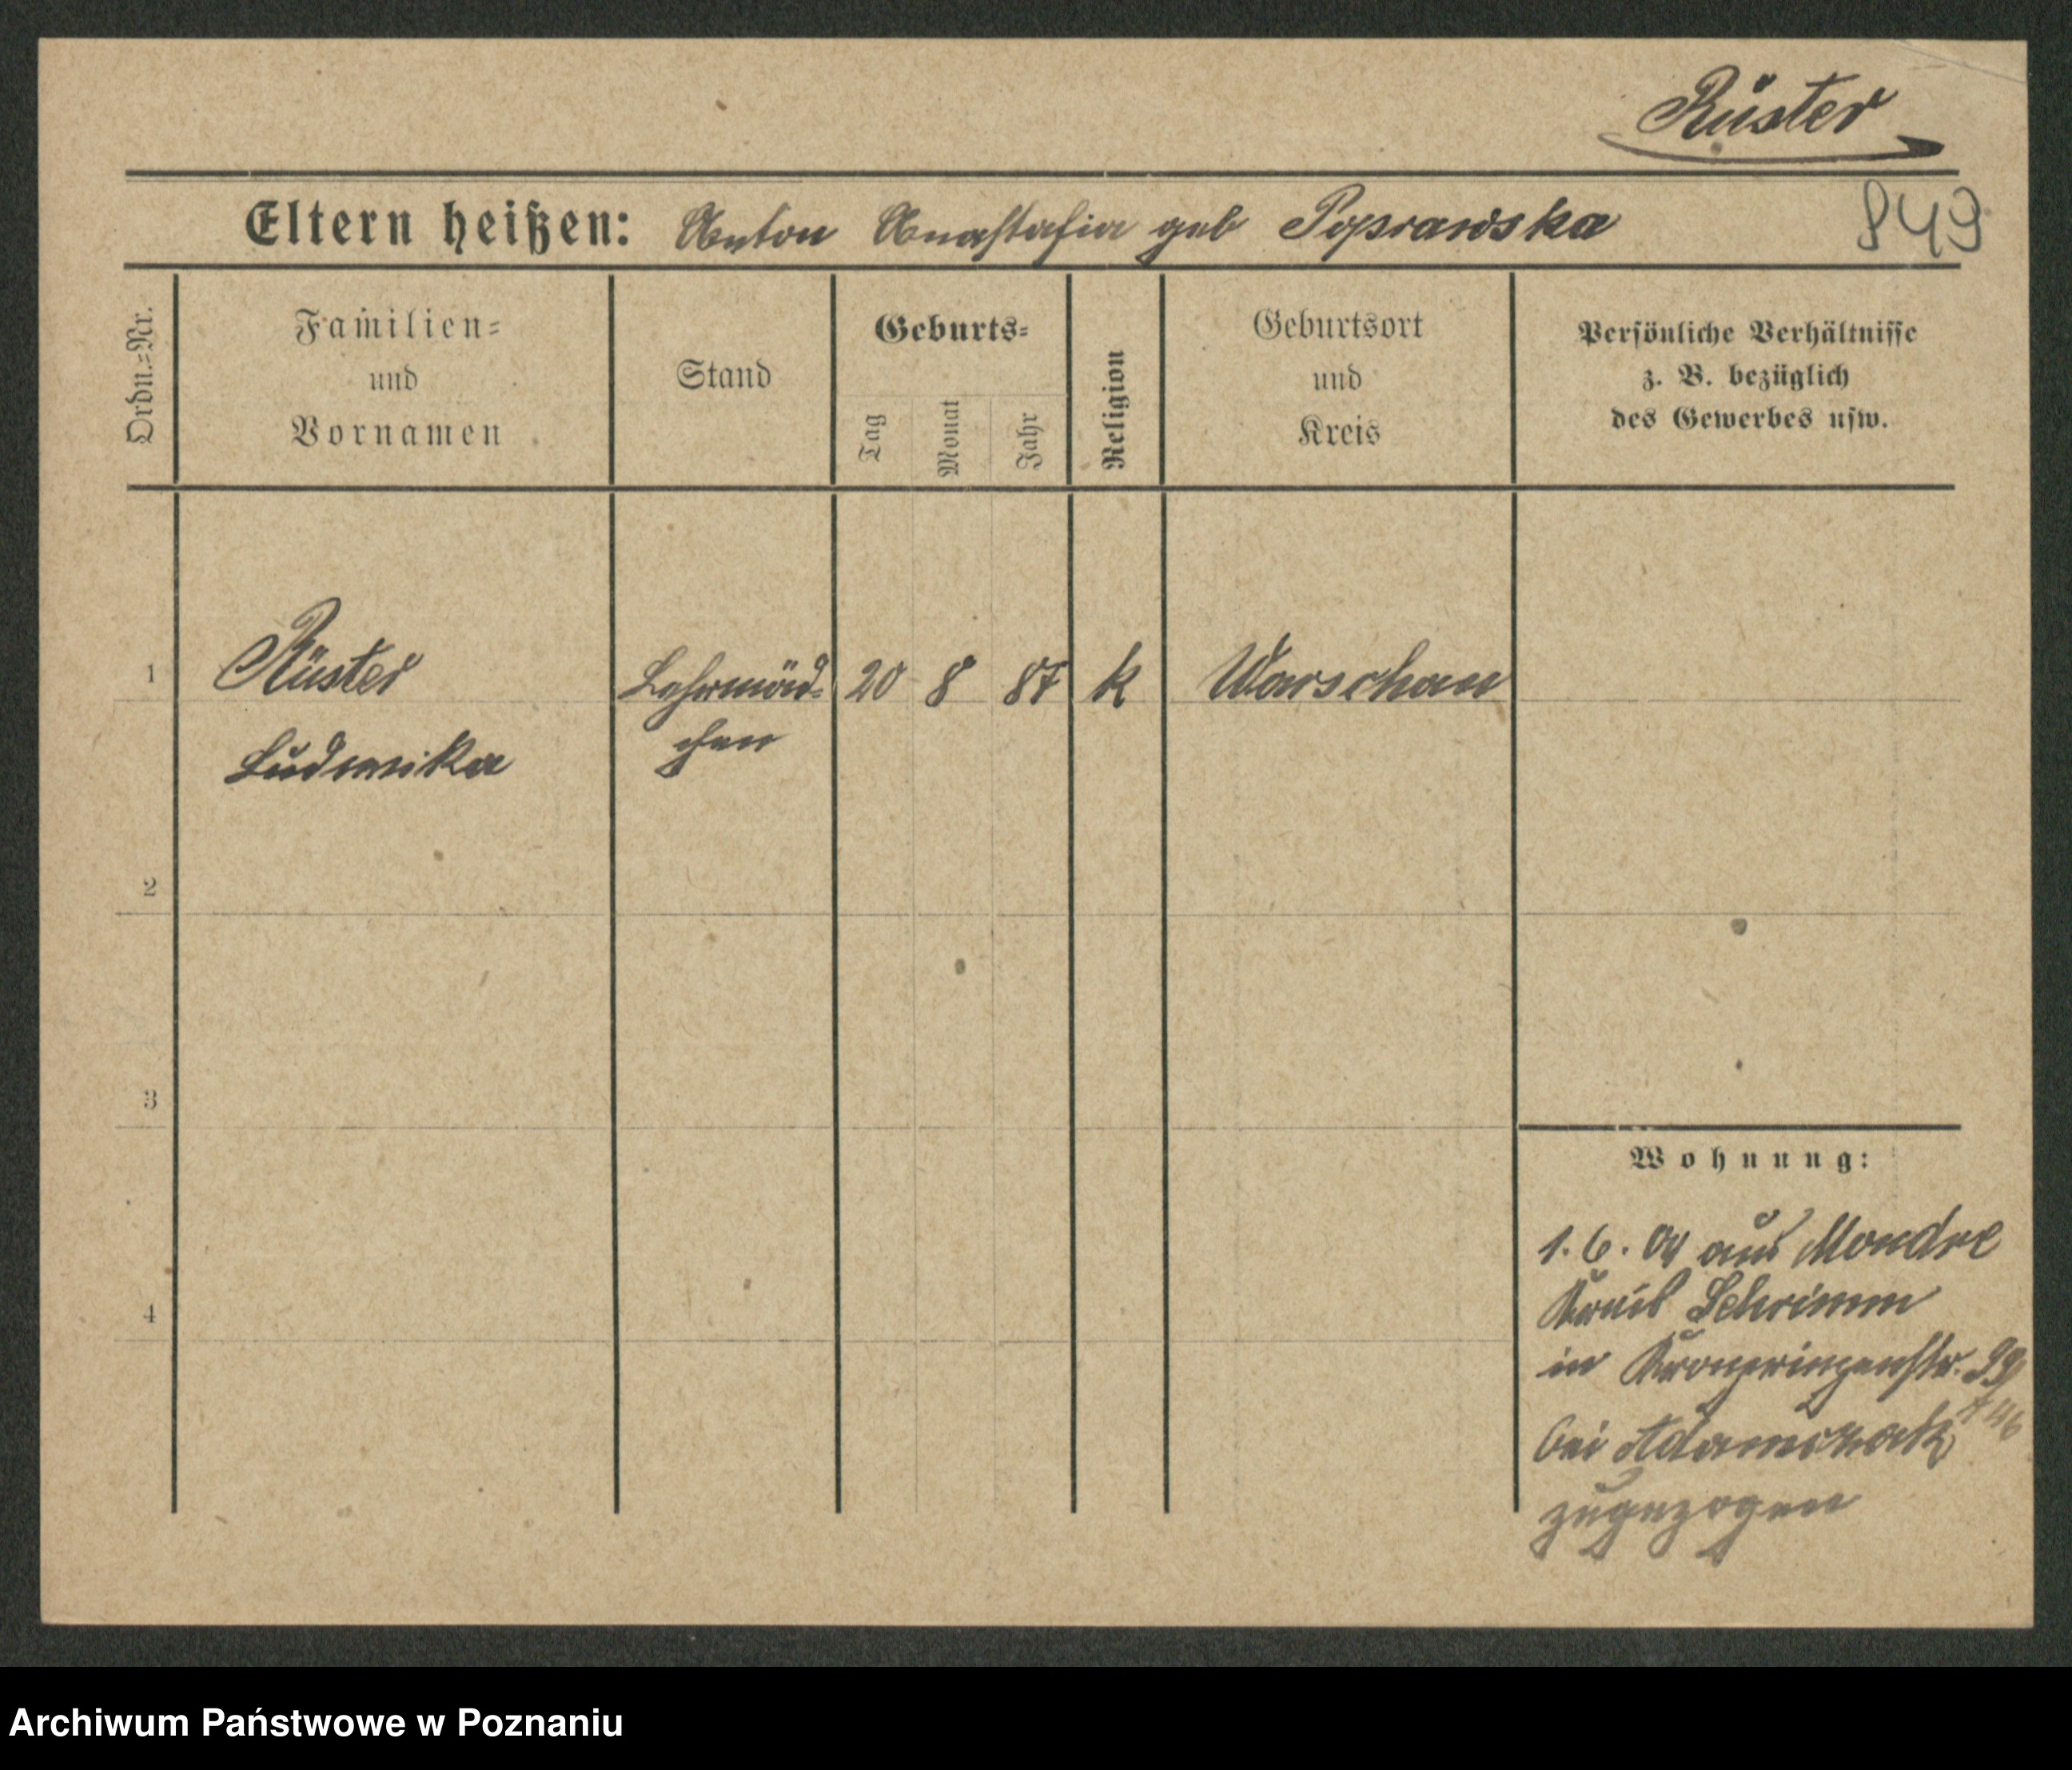 Rüster
Eltern heißen: Anton Anastasia geb Poprawska
849
Ordn.=Nr.
Familien=
und
Vornamen
Stand
Geburts=
Tag
Monat
Jahr
Religion
Geburtsort
und
Kreis
Persönliche Verhältnisse
z. B. bezüglich
des Gewerbes usw.
1
Rüster
Ludwika
Lehrmäd-
chen
20 8 87
k
Warschau
2
3
4
Wohnung:
1. 6. 04 aus Mondre
Kreis Schrimm
in Kronprinzenstr. 99
bei Adamczak
zugezogen
Archiwum Państwowe w Poznaniu